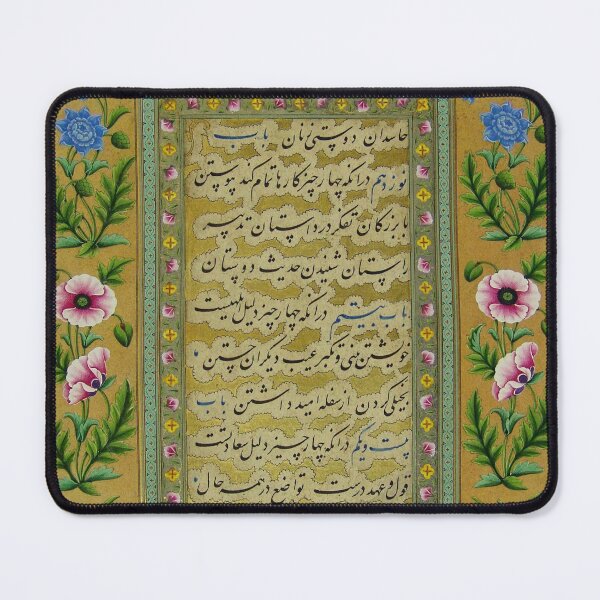 حاسدان دوستی زنان باب
نوزدهم درانکه چهار چیز کارها تمام کند پیوستن
با بزرکان تفکر در داستان تدبیر
راستان شنیدن حدیث دوستان
باب بیستم درانکه چهار چیز دلیل بلهیست
خویشتن بینی و تکبر عیب دیگران جستن
بخیلی کردن از سفله امید داشتن باب
بیست و یکم درانکه چهار چیز دلیل سعادتست
قول و عهد درست تواضع در همه حال